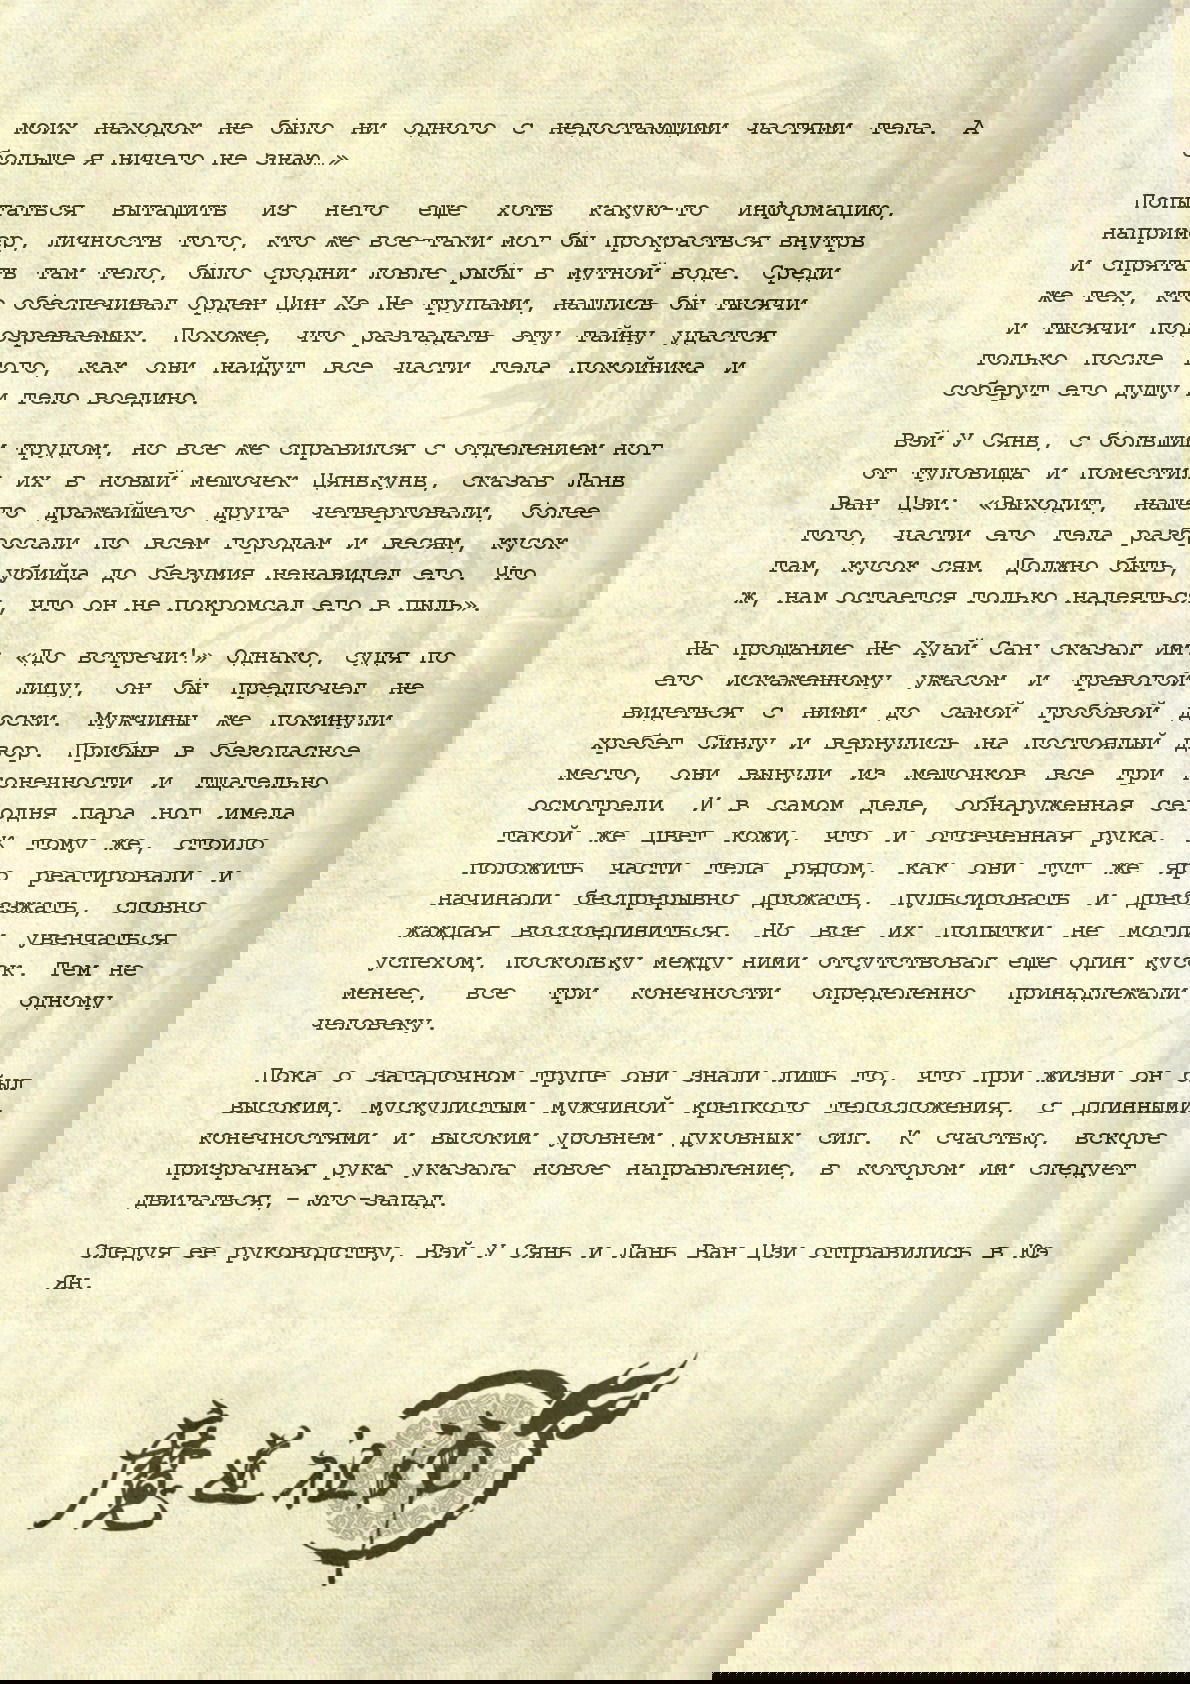 моих находок не было ни одного с недостающими частями тела. А
больше я ничего не знаю…»
Попытаться вытащить из него еще хоть какую-то информацию,
например, личность того, кто же все-таки мог бы прокрасться внутрь
и спрятать там тело, было сродни ловле рыбы в мутной воде. Среди
же тех, кто обеспечивал Орден Цин Хэ Не трупами, нашлись бы тысячи
и тысячи подозреваемых. Похоже, что разгадать эту тайну удастся
только после того, как они найдут все части тела покойника и
соберут его душу и тело воедино.
Вэй У Сянь, с большим трудом, но все же справился с отделением ног
от туловища и поместил их в новый мешочек Цянькунь, сказав Лань
Ван Цзи: «Выходит, нашего дражайшего друга четвертовали, более
того, части его тела разбросали по всем городам и весям, кусок
там, кусок сям. Должно быть, убийца до безумия ненавидел его. Что
ж, нам остается только надеяться, что он не покромсал его в пыль».
На прощание Не Хуай Сан сказал им: «До встречи!» Однако, судя по
его искаженному ужасом и тревогой лицу, он бы предпочел не
видеться с ними до самой гробовой доски. Мужчины же покинули
хребет Синлу и вернулись на постоялый двор. Прибыв в безопасное
место, они вынули из мешочков все три конечности и тщательно
осмотрели. И в самом деле, обнаруженная сегодня пара ног имела
такой же цвет кожи, что и отсеченная рука. К тому же, стоило
положить части тела рядом, как они тут же яро реагировали и
начинали беспрерывно дрожать, пульсировать и дребезжать, словно
жаждая воссоединиться. Но все их попытки не могли увенчаться
успехом, поскольку между ними отсутствовал еще один кусок. Тем не
менее, все три конечности определенно принадлежали одному
человеку.
Пока о загадочном трупе они знали лишь то, что при жизни он был
высоким, мускулистым мужчиной крепкого телосложения, с длинными
конечностями и высоким уровнем духовных сил. К счастью, вскоре
призрачная рука указала новое направление, в котором им следует
двигаться, – юго-запад.
Следуя ее руководству, Вэй У Сянь и Лань Ван Цзи отправились в Юэ
Ян.
魔道祖师